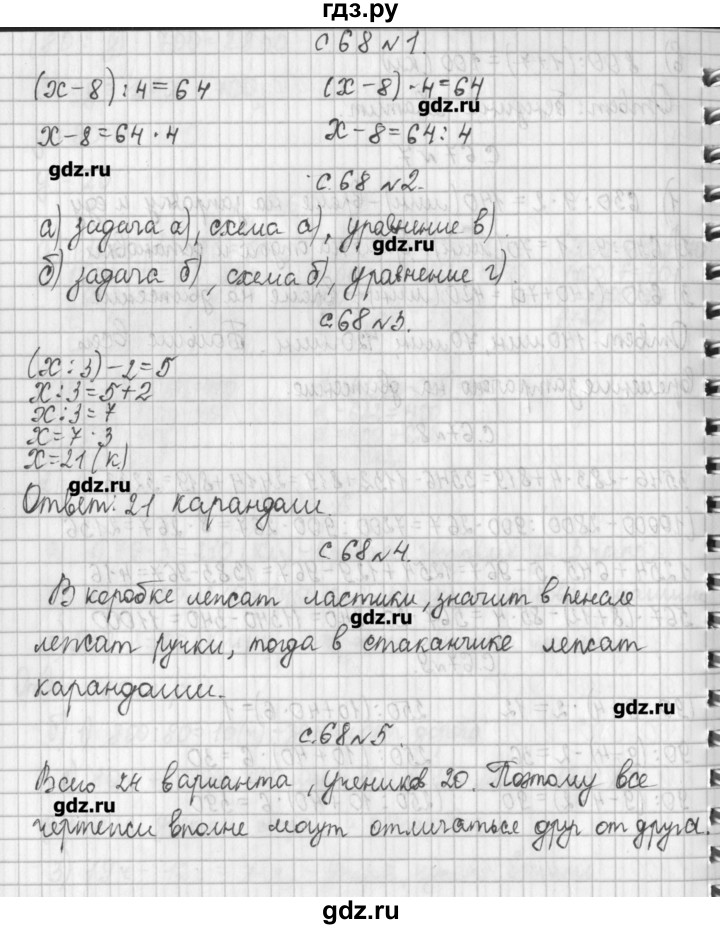 гдз.ру
с 68 №1.
(x-8):4=64 (x-8)·4=64
gdz.ru
x-8=64·4 x-8=64:4
gdz.ru
с.68 №2.
а) задача а), схема а), уравнение в).
gdz.ru
б) задача б), схема б), уравнение г).
с.68 №3.
(x:3)-2=5
x:3=5+2
x:3=7
x=7·3
x=21(к.)
gdz.ru
Ответ: 21 карандаш.
с.68 №4.
В коробке лежат ластики, значит в пенале
gdz.ru
лежат ручки, тогда в стаканчике лежат
карандаши.
gdz.ru
с.68 №5.
Всего 24 варианта, учеников 20. Поэтому все
gdz.ru
чертежи вполне могут отличаться друг от друга.
gdz.ru